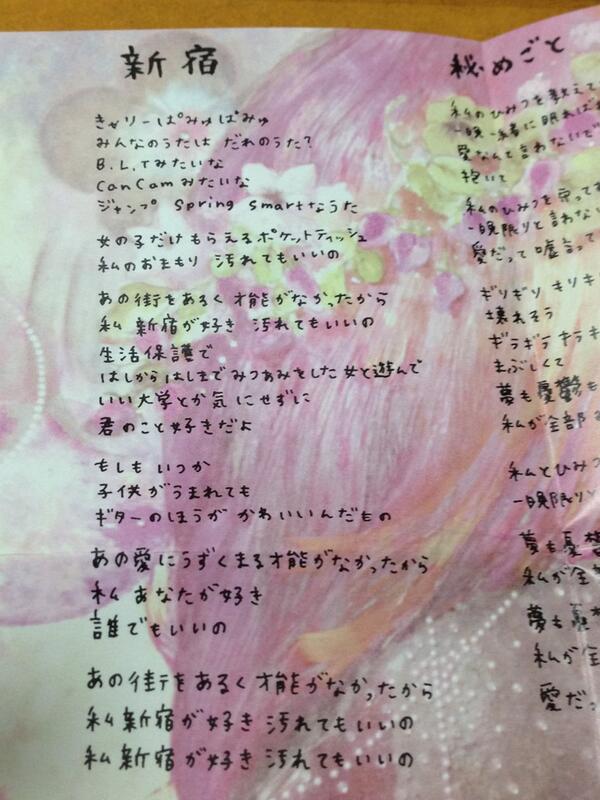 新宿
きゃりーぱみゅぱみゅ
みんなのうたは だれのうた?
B.L.Tみたいな
CanCamみたいな
ジャンプ Spring smartなうた
女の子だけもらえるポケットティッシュ
私のおまもり 汚れてもいいの
あの街をあるく才能がなかったから
私 新宿が好き 汚れてもいいの
生活保護で
はしからはしまでみつあみをした女と遊んで
いい大学とか気にせずに
君のこと好きだよ
もしもいつか
子供がうまれても
ギターのほうがかわいいんだもの
あの愛にうずくまる才能がなかったから
私 あなたが好き
誰でもいいの
あの街をあるく才能がなかったから
私新宿が好き 汚れてもいいの
私新宿が好き 汚れてもいいの
秘めごと
私のひみつを教えて
一晩一緒に眠れば
愛なんて言わないで
抱いて
私のひみつを守って
一晩限りと言わない
愛だって嘘言って
ギリギリ キリキ
壊れそう
ギラギラ キラキ
まぶしくて
夢も憂鬱も
私が全部
私とひみつ
一晩限り
夢も憂鬱
私が全
夢も憂
私が全
愛だっ